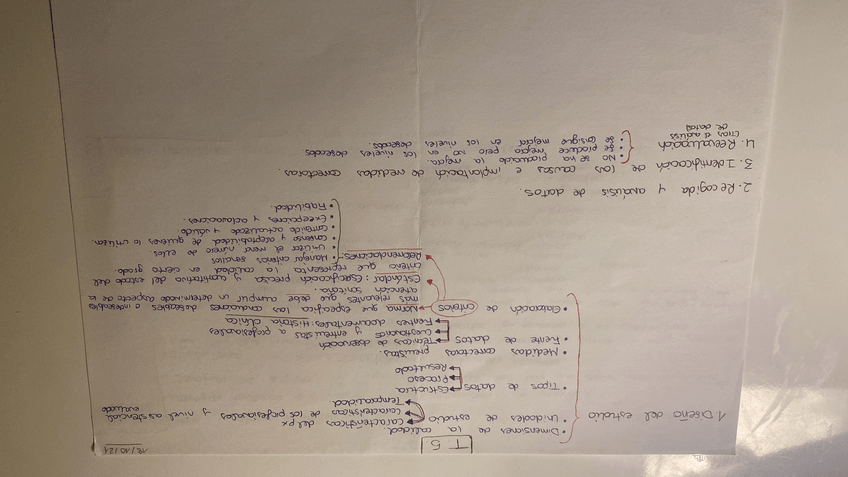 19/10/21
T 5
1. Diseño del estudio
• Dimensiones de la calidad.
• Unidades de estudio
Características del px
Características de los profesionales y nivel asistencial evaluado
Temporalidad
• Tipos de datos
Estructura
Proceso
Resultado
• Medidas correctoras previstas.
• Fuente de datos
Técnicas de observación
Cuestionarios y entrevistas a profesionales
Fuentes documentales: Historia clínica
• Elaboración de criterios
Norma que especifica las condiciones deseables o indeseables
más relevantes que debe cumplir un determinado aspecto de la
atención sanitaria.
Estándar: Especificación precisa y cuantitativa del estado del
criterio que representa la calidad en cierto grado.
Recomendaciones:
• Manejar criterios sencillos
• Utilizar el menor número de ellos.
• Consenso y aceptabilidad de quienes lo utilizan.
• Contenido actualizado y válido
• Excepciones y aclaraciones.
• Fiabilidad.
2. Recogida y análisis de datos.
3. Identificación de las causas e implantación de medidas correctoras.
4. Reevaluación
(tras el análisis
de datos)
• No se ha producido la mejora.
• Se produce mejora pero no en los niveles deseados
• Se consigue mejorar en los niveles deseados.